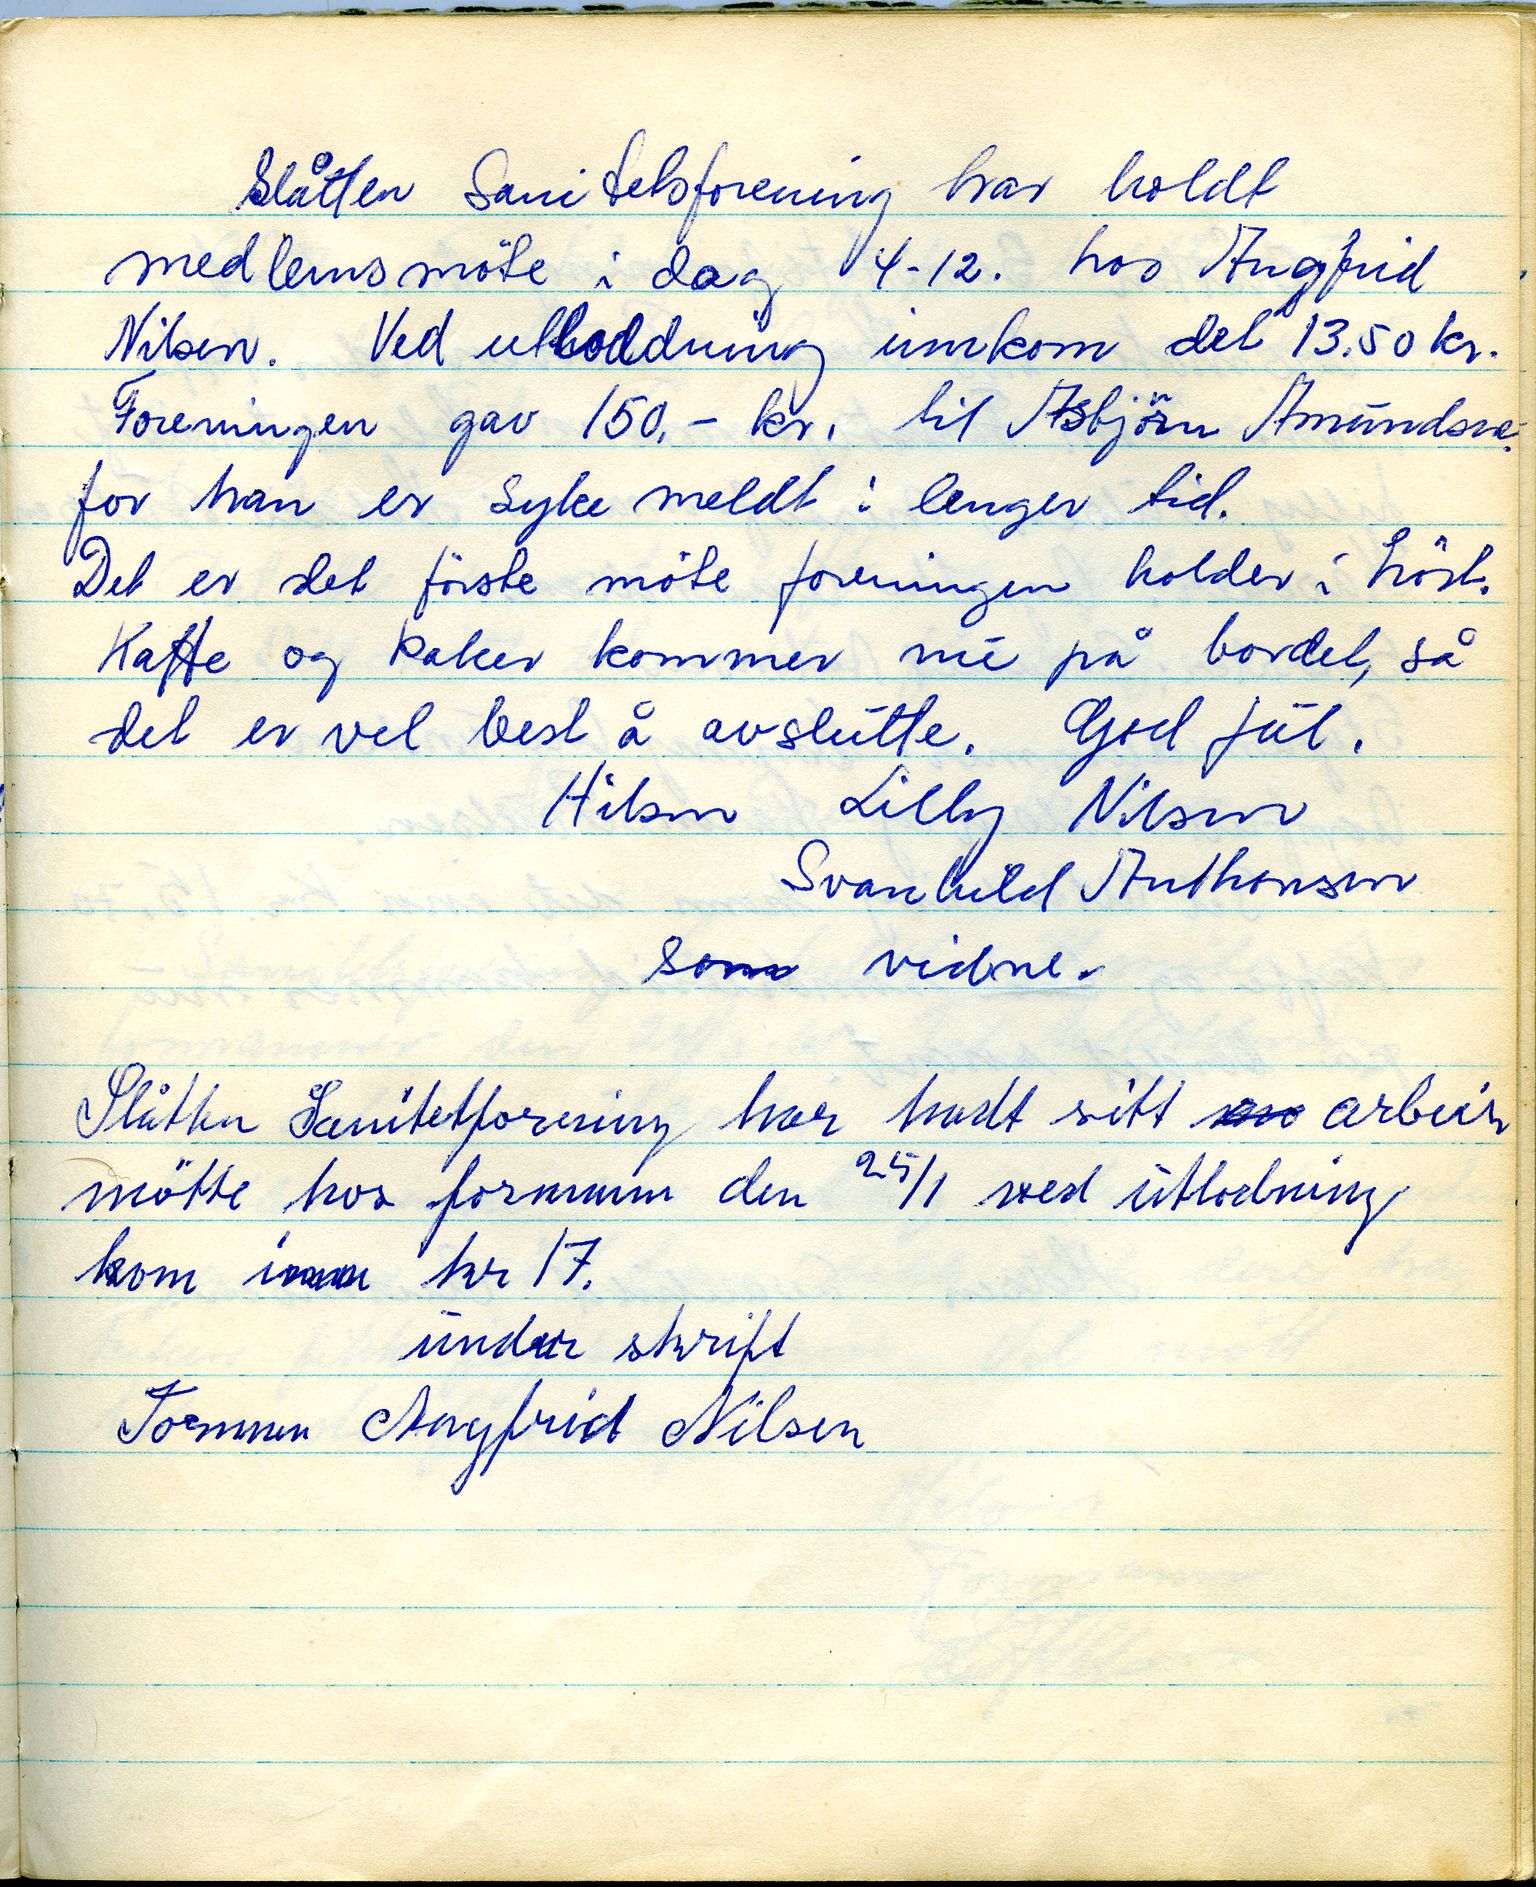 Slåtten Sanitetsforening har holdt
medlemsmöte i dag 4-12. hos Angfrid
Nilsen. Ved utloddning innkom det 13.50 kr.
Foreningen gav 150,- kr. til Asbjörn Amundsen.
for han er syke meldt i lenger tid.
Det er det förste möte foreningen holder i höst.
Kaffe og kaker kommer nú på bordet, så
det er vel best å avslútte. God júl.
Hilsen Lilly Nilsen
Svanhild Anthonsen
som vidne.
Slåtten Sanitetforening har hadt sitt arbeids
mötte hos formann den 25/1 ved útlodning
kom inn kr 17.
únder skrift
Formann Angfrid Nilsen